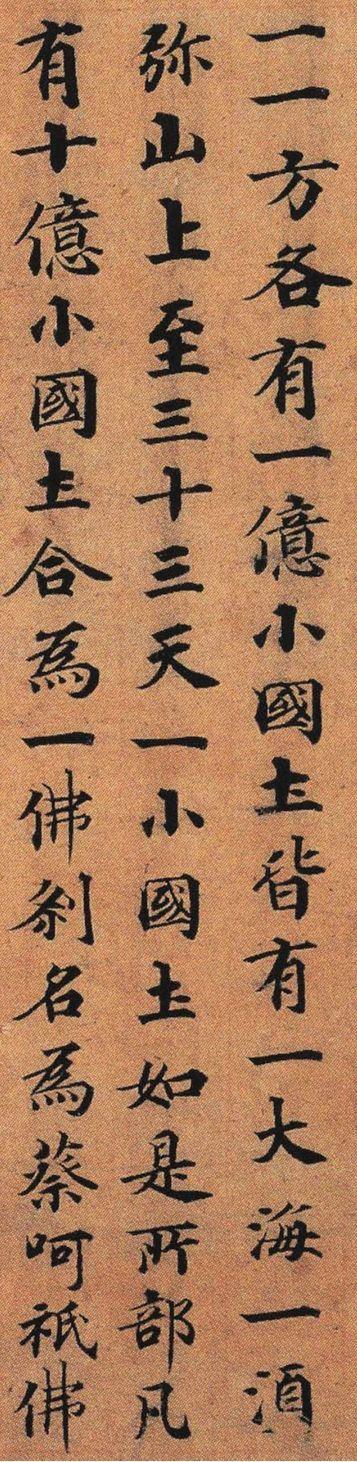 一一方各有一億小國土皆有一大海一湏
弥山上至三十三天一小國土如是所部凡
有十億小國土合為一佛刹名為蔡呵祇佛